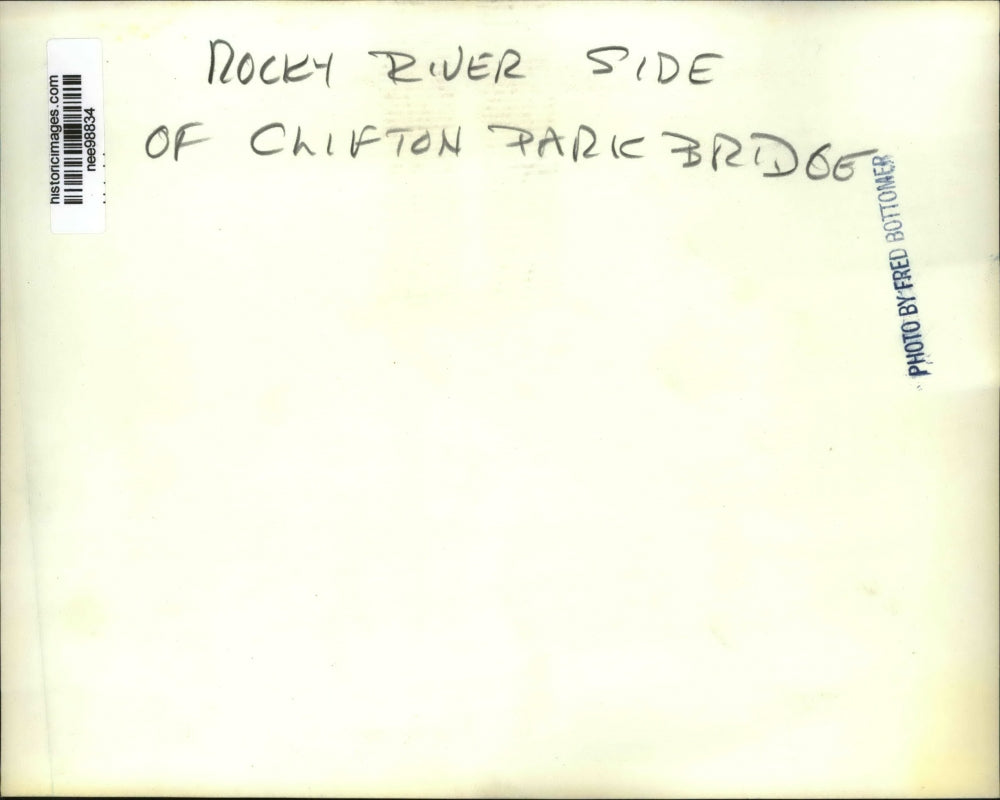 ROCKY RIVER SIDE
OF CLIFTON PARK BRIDGE
historicimages.com
nee98834
PHOTO BY FRED BOTTOMER